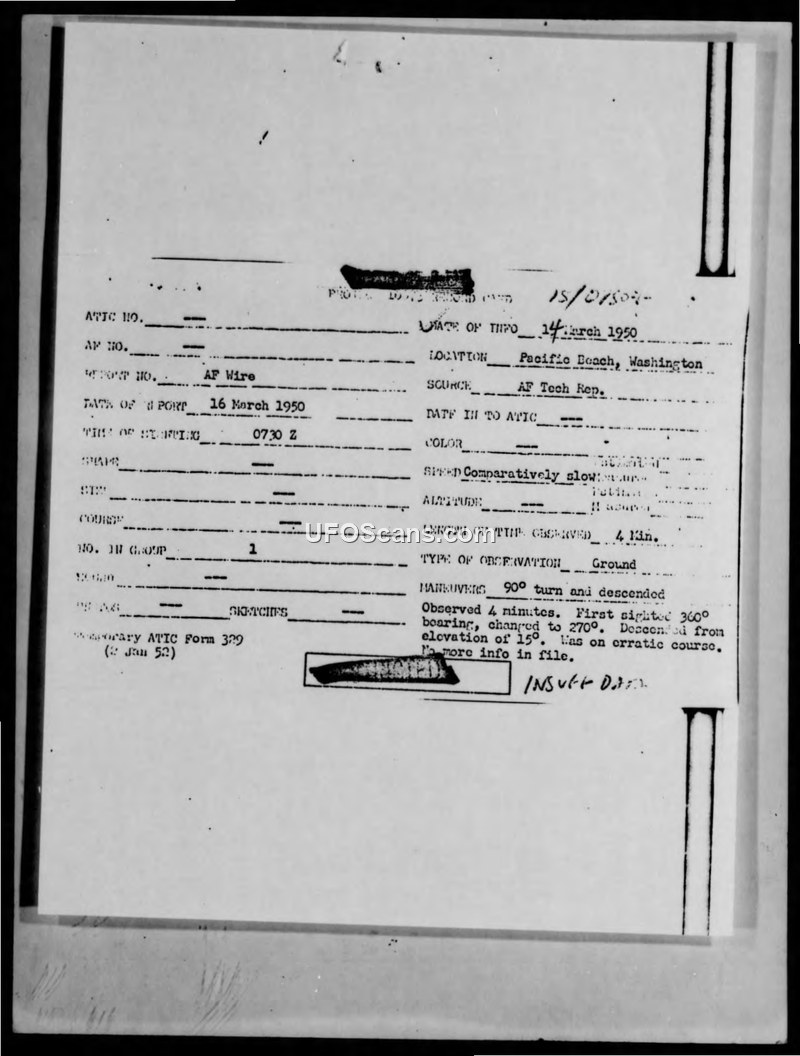 RECORD CARD
ATIC NO. —
AF NO. —
REPORT NO. AF Wire
DATE OF REPORT 16 March 1950
TIME OF SIGHTING 0730 Z
SHAPE —
SIZE —
COURSE —
NO. IN GROUP 1
SOUND —
PHOTOS — SKETCHES —
Temporary ATIC Form 329
(2 Jan 52)
DATE OF INFO 14 March 1950
LOCATION Pacific Beach, Washington
SOURCE AF Tech Rep.
DATE IN TO ATIC —
COLOR —
SPEED Comparatively slow
ALTITUDE —
LENGTH OF TIME OBSERVED 4 Min.
TYPE OF OBSERVATION Ground
MANEUVERS 90° turn and descended
Observed 4 minutes. First sighted 360°
bearing, changed to 270°. Descended from
elevation of 15°. Was on erratic course.
No more info in file.
INSUFF DATA
UFOScans.com